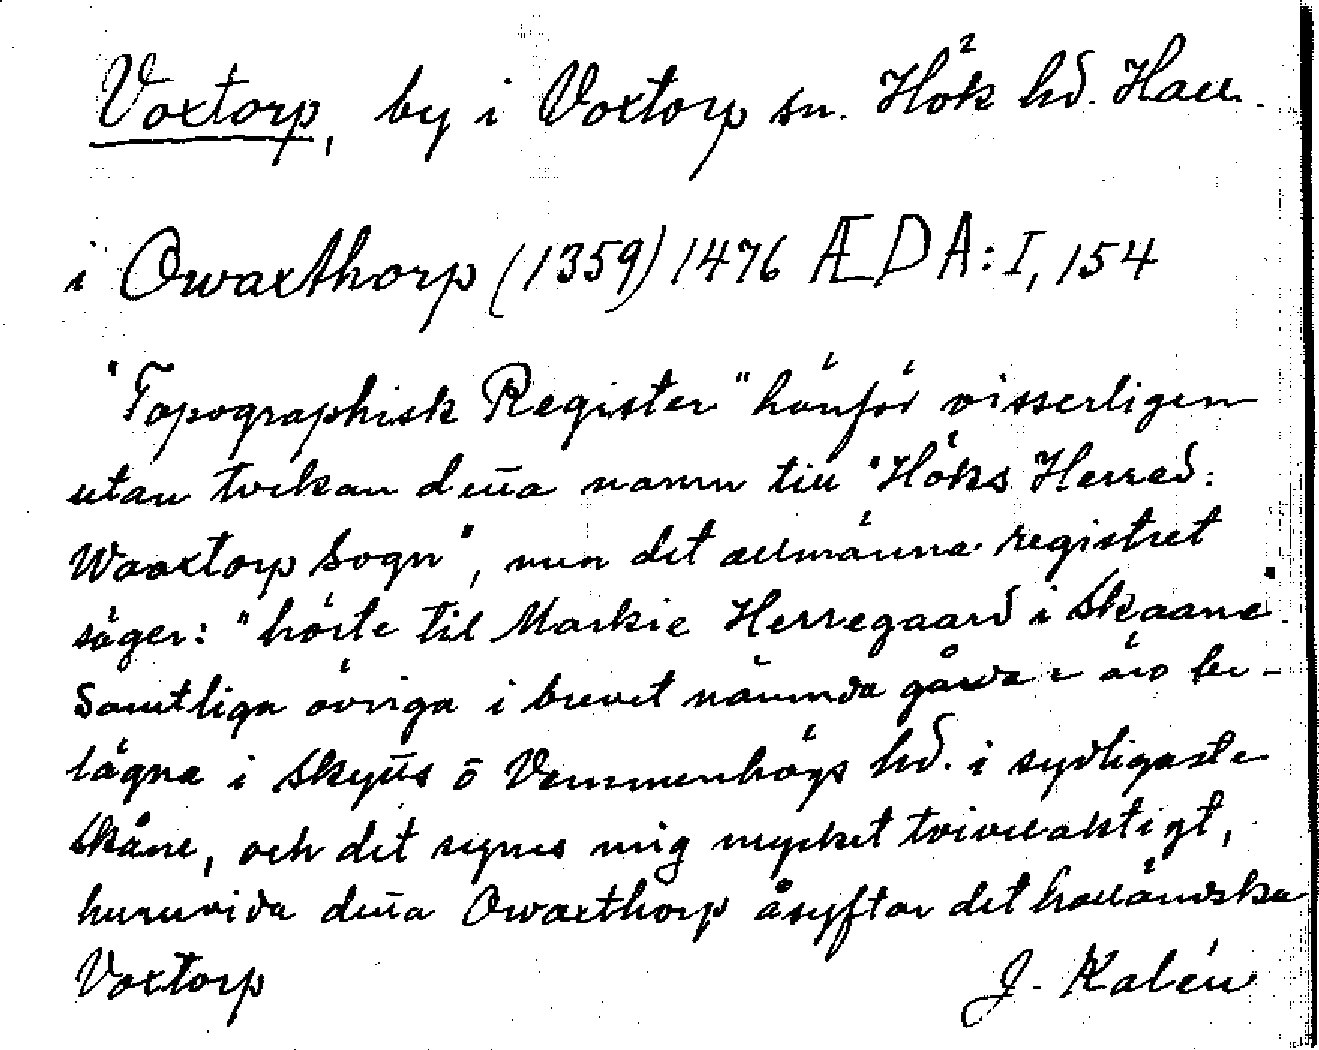 Voxtorp, by i Voxtorp sn. Hök hd. Hall.
i Owaxthorp (1359) 1476 ÆDA: I, 154
"Topographisk Register" hänför visserligen
utan tvekan detta namn till "Höks Herred:
Waaxtorp Sogn", men det allmänna registret
säger: "hörte til Markie Herregaard i Skaane".
Samtliga övriga i brevet nämnda gårdar äro be-
lägna i Skytts o Vemmenhögs hd. i sydligaste
Skåne, och det synes mig mycket tvivelaktigt,
huruvida detta Owaxthorp åsyftar det halländska
Voxtorp
J. Kalén